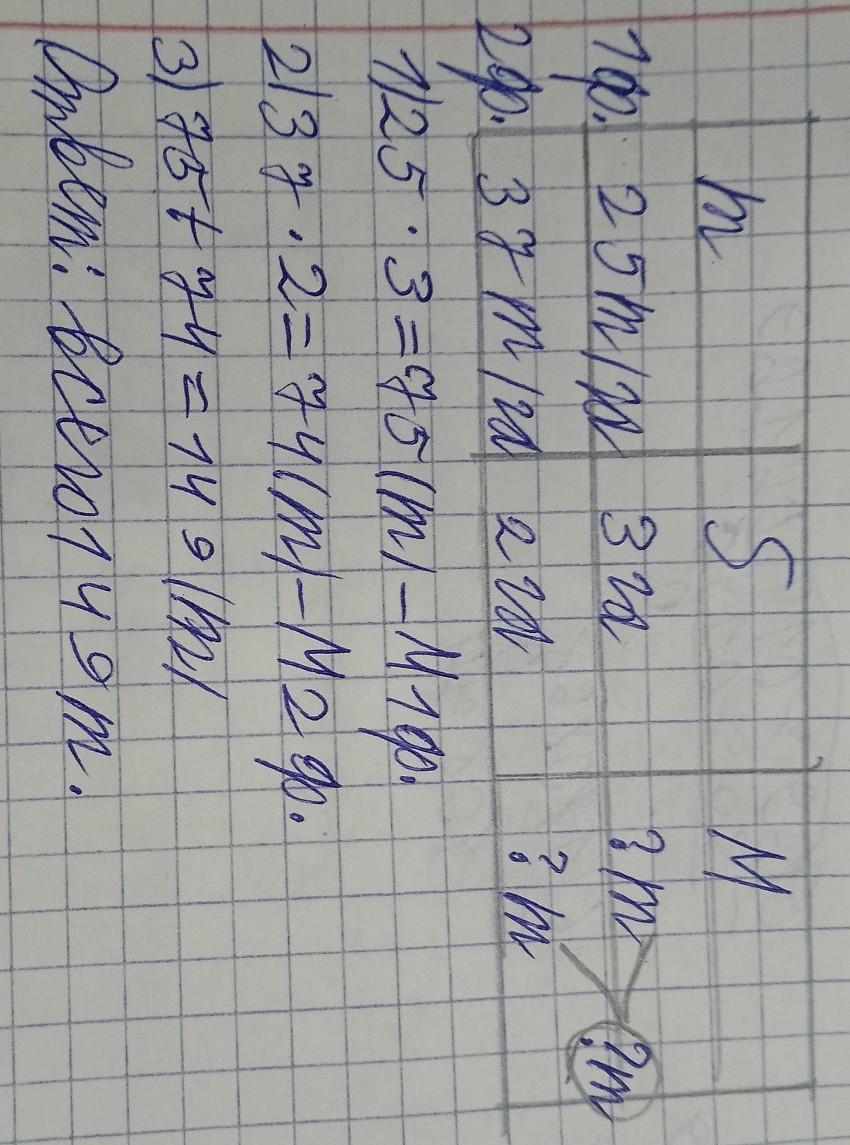 m S M
1ф. 25 т/га 3 га ? т
2ф. 37 т/га 2 га ? т ? т
1) 25 · 3 = 75 (т) – М 1 ф.
2) 37 · 2 = 74 (т) – М 2 ф.
3) 75 + 74 = 149 (т)
Ответ: всего 149 т.